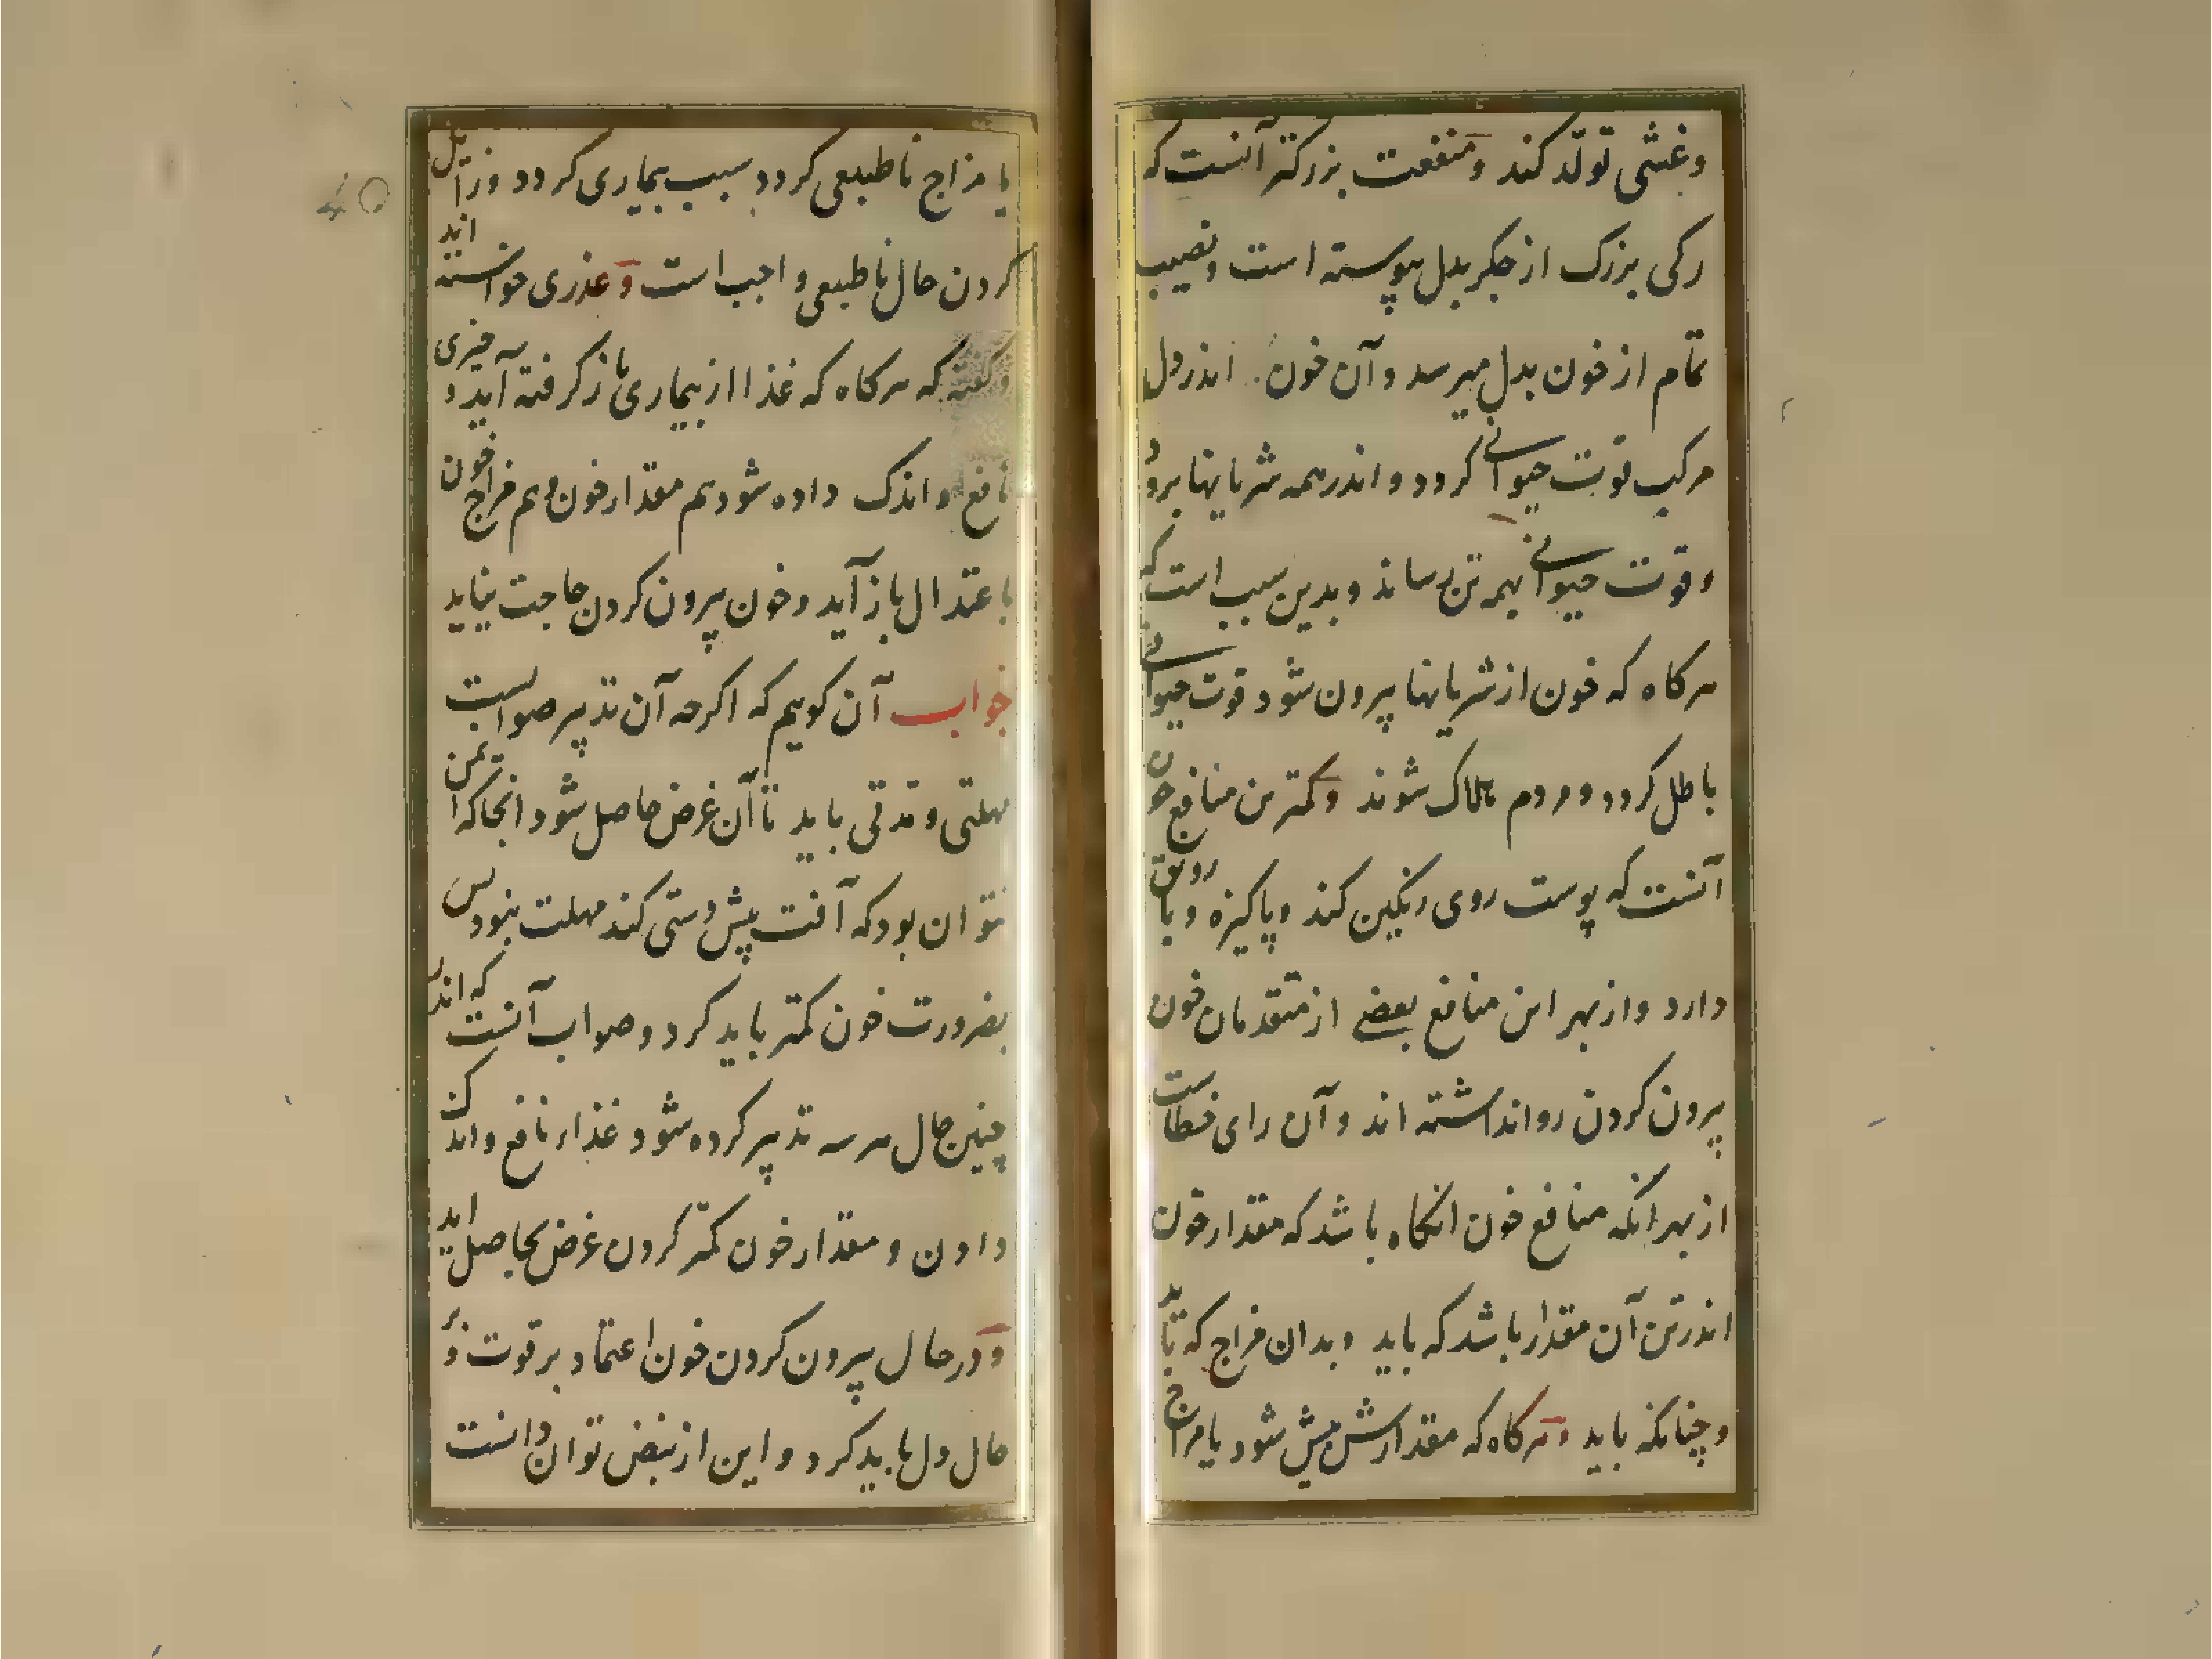 وغشی تولد کند و منفعت بزرکتر آنست که
رکی بزرک از جکر بدل پیوسته است و نصیب
تمام از خون بدل میرسد و آن خون اندر دل
مرکب قوت حیوانی کردد و اندر همه شریانها برود
و قوت حیوانی بهمه تن رساند و بدین سبب است که
هرکاه که خون از شریانها بیرون شود قوت حیوانی
باطل کردد و مردم هلاک شوند و کمترین منافع خون
آنست که پوست روی رنکین کند و پاکیزه و با رونق
دارد و از بهر این منافع بعضی از متقدمان خون
بیرون کردن روا نداشته اند و آن رای خطاست
از بهر انکه منافع خون انکاه باشد که مقدار خون
اندر تن آن مقدار باشد که باید و بدان مزاج که باید
و چنانکه باید و هرکاه که مقدارش بیش شود یا مزاج
یا مزاج ناطبیعی کردد سبب بیماری کردد و زایل
کردن حال ناطبیعی واجب است و عذری خواسته اند
و کفته که هرکاه که غذا از بیماری بازکرفته آید و چیزی
نافع و اندک داده شود هم مقدار خون و هم مزاج خون
باعتدال باز آید و خون بیرون کردن حاجت نیاید
جواب آن کوییم که اکرچه آن تدبیر صوابست
مهلتی و مدتی باید تا آن غرض حاصل شود انجا که ایمن
نتوان بود که آفت پیش دستی کند مهلت نبود پس
بضرورت خون کمتر باید کرد و صواب آنست که اندر
چنین حال هر سه تدبیر کرده شود غذاء نافع و اندک
دادن و مقدار خون کمتر کردن غرض بحاصل آید
و در حال بیرون کردن خون اعتماد بر قوت و بر
حال دل باید کرد و این از نبض توان دانست
40